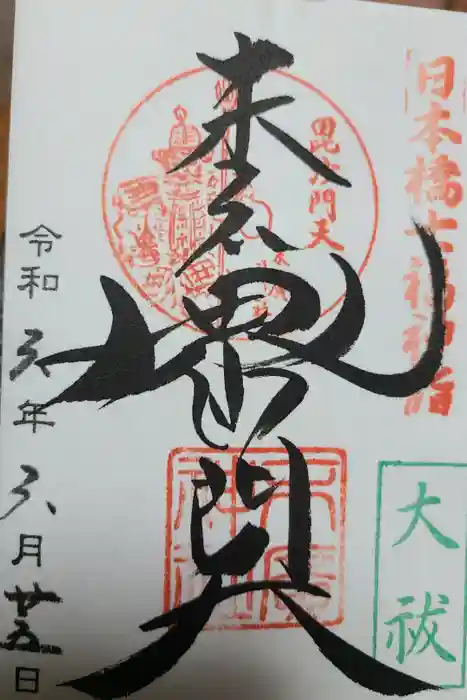 日本橋七福神詣
大祓
毘沙門天
毘沙門天
末廣
神社
令和六年六月廿五日